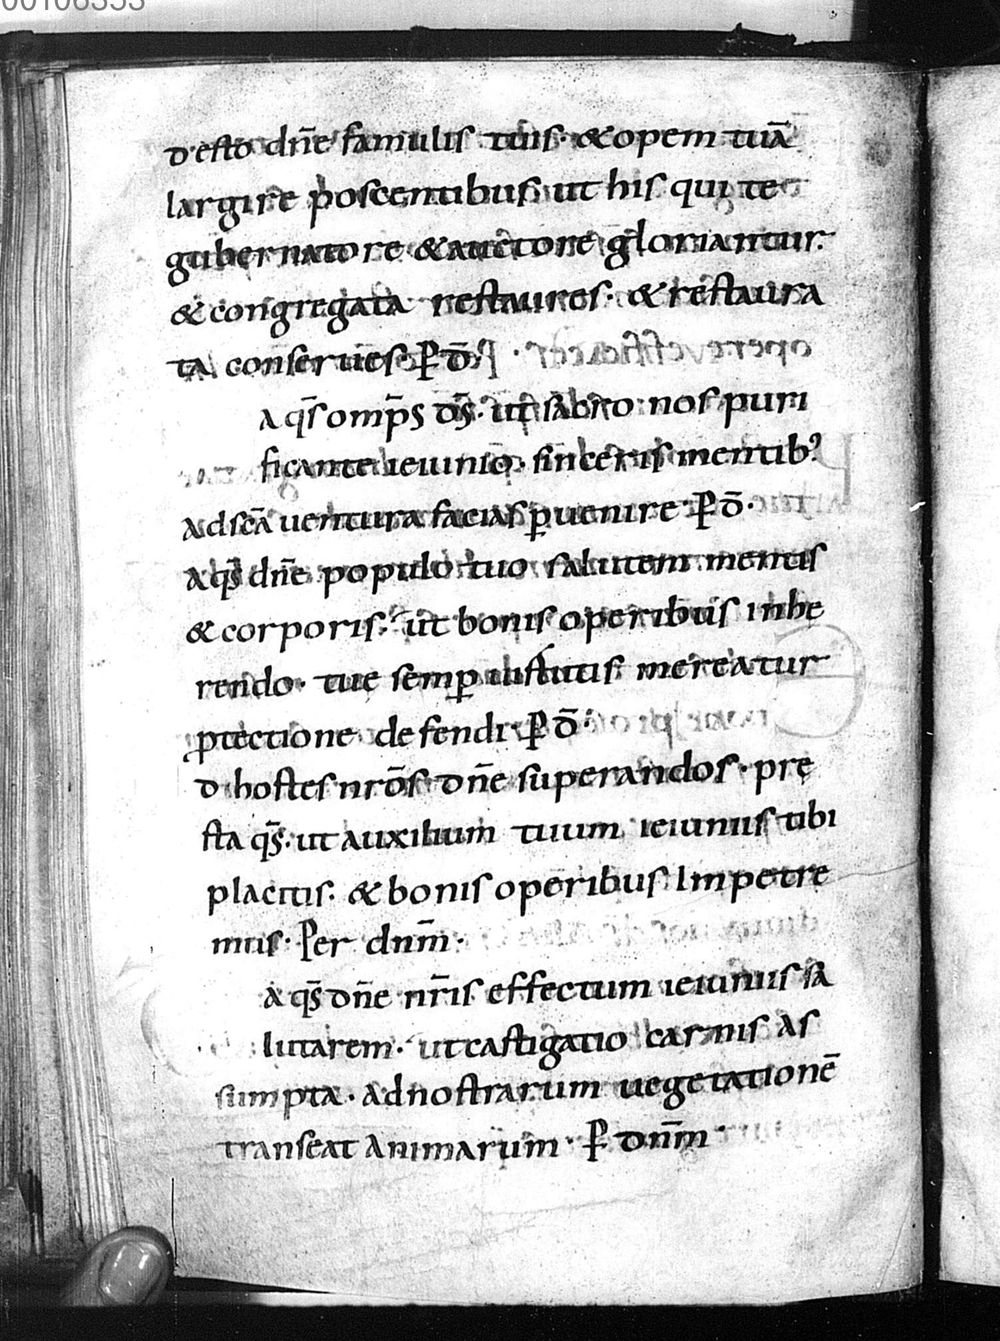 desto dñe famulis tuis· & opem tuā
largire poscentibus· ut his qui te
gubernatore & auctore gloriantur·
& congregata restaures· & restaura
ta conserues· P̄ dn̄·
aq̄s omp̄s ds̄· ut sacro nos puri
ficante ieiunio· sinceris mentib'
ad scā uentura facias puenire· P̄ dn̄·
aq̄s dñe populo tuo salutem mentis
& corporis· ut bonis operibus inhe
rendo· tuę semp uirtutis mereatur
ptectione defendi· P̄ d̄·
d hostes nrōs dñe superandos· prę
sta qs̄· ut auxilium tuum ieiuniis tibi
placitis· & bonis operibus Impetre
mus· Per dnm̄·
aq̄s dñe nr̄is effectum ieiuniis sa
lutarem· ut castigatio carnis as
sumpta· ad nostrarum uegetationē
transeat animarum· P̄ dnm̄·